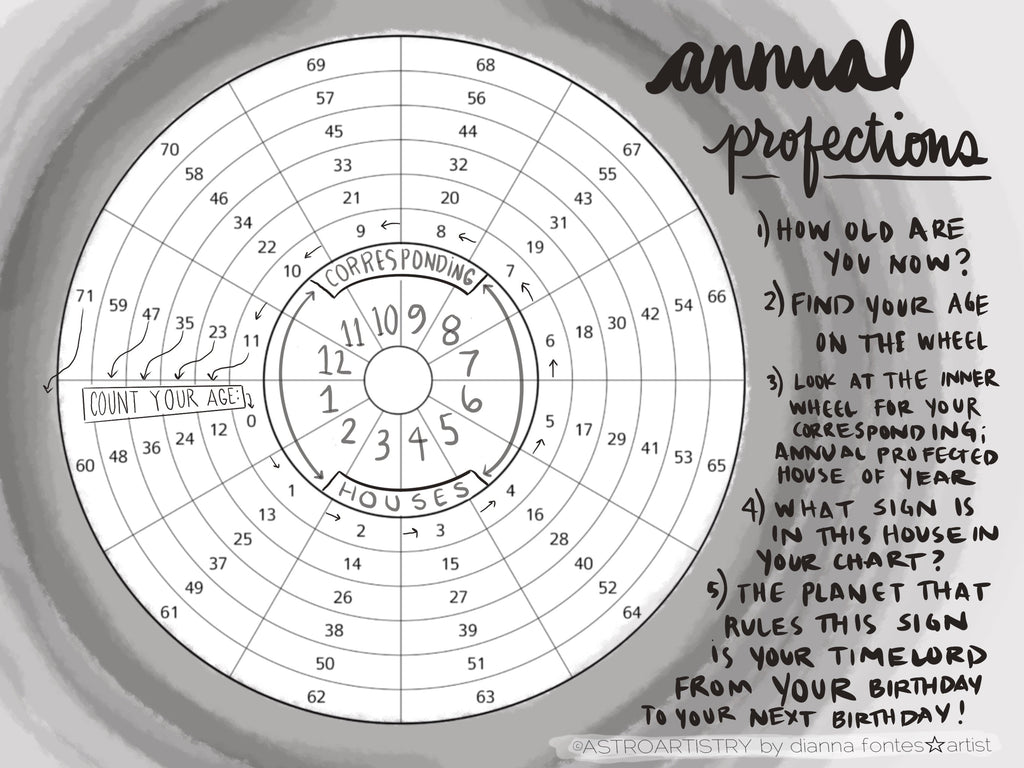 annual
profections
1) HOW OLD ARE
YOU NOW?
2) FIND YOUR AGE
ON THE WHEEL
3) LOOK AT THE INNER
WHEEL FOR YOUR
CORRESPONDING;
ANNUAL PROFECTED
HOUSE OF YEAR
4) WHAT SIGN IS
IN THIS HOUSE IN
YOUR CHART?
5) THE PLANET THAT
RULES THIS SIGN
IS YOUR TIMELORD
FROM YOUR BIRTHDAY
TO YOUR NEXT BIRTHDAY!
©ASTROARTISTRY by dianna fontes☆artist
69 68
57 56
45 44
33 32
21 20
9 8
70 58 46 34 22 10
67 55 43 31 19 7
71 59 47 35 23 11
66 54 42 30 18 6
COUNT YOUR AGE:
60 48 36 24 12 0
65 53 41 29 17 5
61 49 37 25 13 1
64 52 40 28 16 4
2 3
14 15
26 27
38 39
50 51
62 63
CORRESPONDING
11 10 9 8
12 7
1 6
2 3 4 5
HOUSES